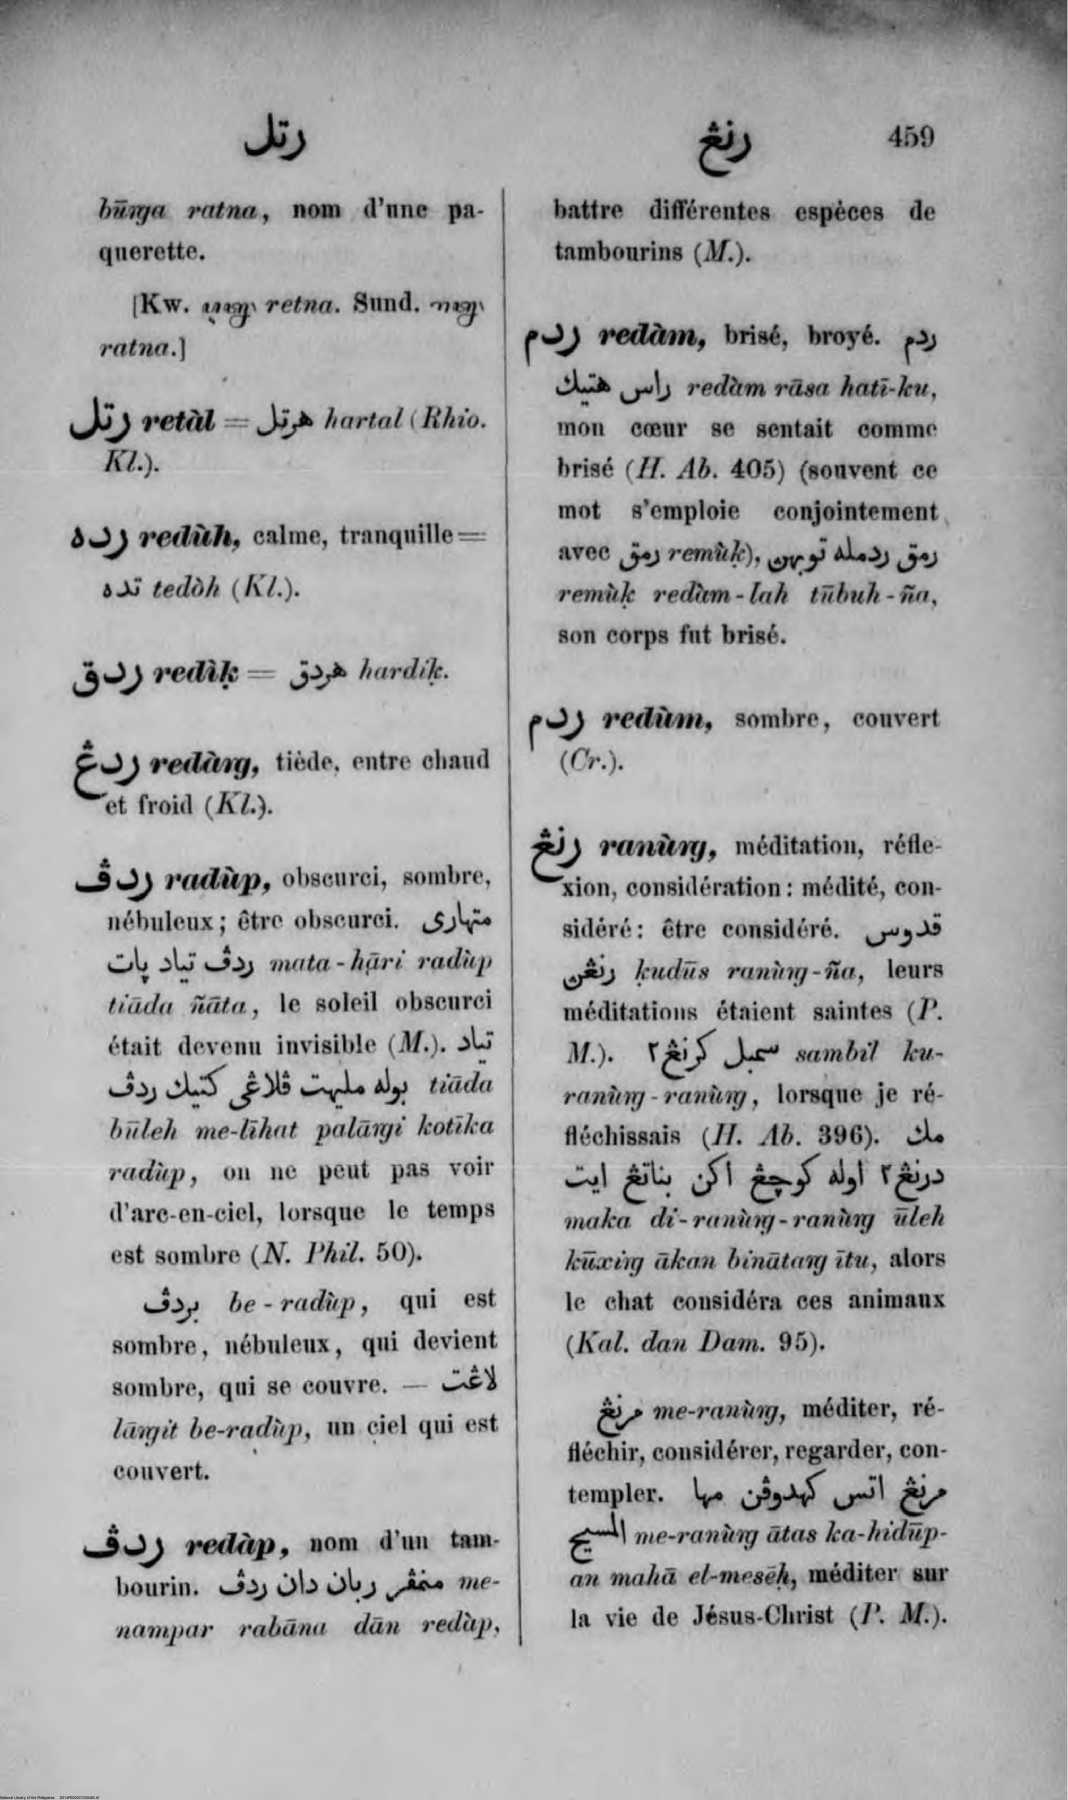 رتل
رنڠ 459
būrga ratna, nom d'une pa-
querette.
[Kw. retna. Sund.
ratna.]
رتل retàl = هرتل hartal (Rhio.
Kl.).
رده redùh, calme, tranquille=
تده tedòh (Kl.).
ردق redìḳ = هردق hardiḳ.
ردڠ redàrg, tiède, entre chaud
et froid (Kl.).
ردڤ radùp, obscurci, sombre,
nébuleux; être obscurci. متهاري
ردڤ تياد ڽات mata-hāri radùp
tiāda ñāta, le soleil obscurci
était devenu invisible (M.). تياد
بوله مليهت ڤلاڠي كتيك ردڤ tiāda
būleh me-līhat palārgi kotīka
radùp, on ne peut pas voir
d'arc-en-ciel, lorsque le temps
est sombre (N. Phil. 50).
بردڤ be-radùp, qui est
sombre, nébuleux, qui devient
sombre, qui se couvre. — لاڠت
lārgit be-radùp, un ciel qui est
couvert.
ردڤ redàp, nom d'un tam-
bourin. منمڤر ربان دان ردڤ me-
nampar rabāna dān redàp,
battre différentes espèces de
tambourins (M.).
ردم redàm, brisé, broyé. ردم
راس هتيك redàm rāsa hatī-ku,
mon cœur se sentait comme
brisé (H. Ab. 405) (souvent ce
mot s'emploie conjointement
avec رمق remùḳ), رمق ردمله توبهن
remùḳ redàm-lah tūbuh-ña,
son corps fut brisé.
ردم redùm, sombre, couvert
(Cr.).
رنڠ ranùrg, méditation, réfle-
xion, considération: médité, con-
sidéré: être considéré. قدوس
رنڠن ḳudūs ranùrg-ña, leurs
méditations étaient saintes (P.
M.). سمبل كرنڠ٢ sambìl ku-
ranùrg-ranùrg, lorsque je ré-
fléchissais (H. Ab. 396). مك
درنڠ٢ اوله كوچڠ اكن بناتڠ ايت
maka di-ranùrg-ranùrg ūleh
kūxirg ākan binātarg ītu, alors
le chat considéra ces animaux
(Kal. dan Dam. 95).
مرنڠ me-ranùrg, méditer, ré-
fléchir, considérer, regarder, con-
templer. مرنڠ اتس كهدوڤن مها
المسيح me-ranùrg ātas ka-hidūp-
an mahā el-mesēḥ, méditer sur
la vie de Jésus-Christ (P. M.).